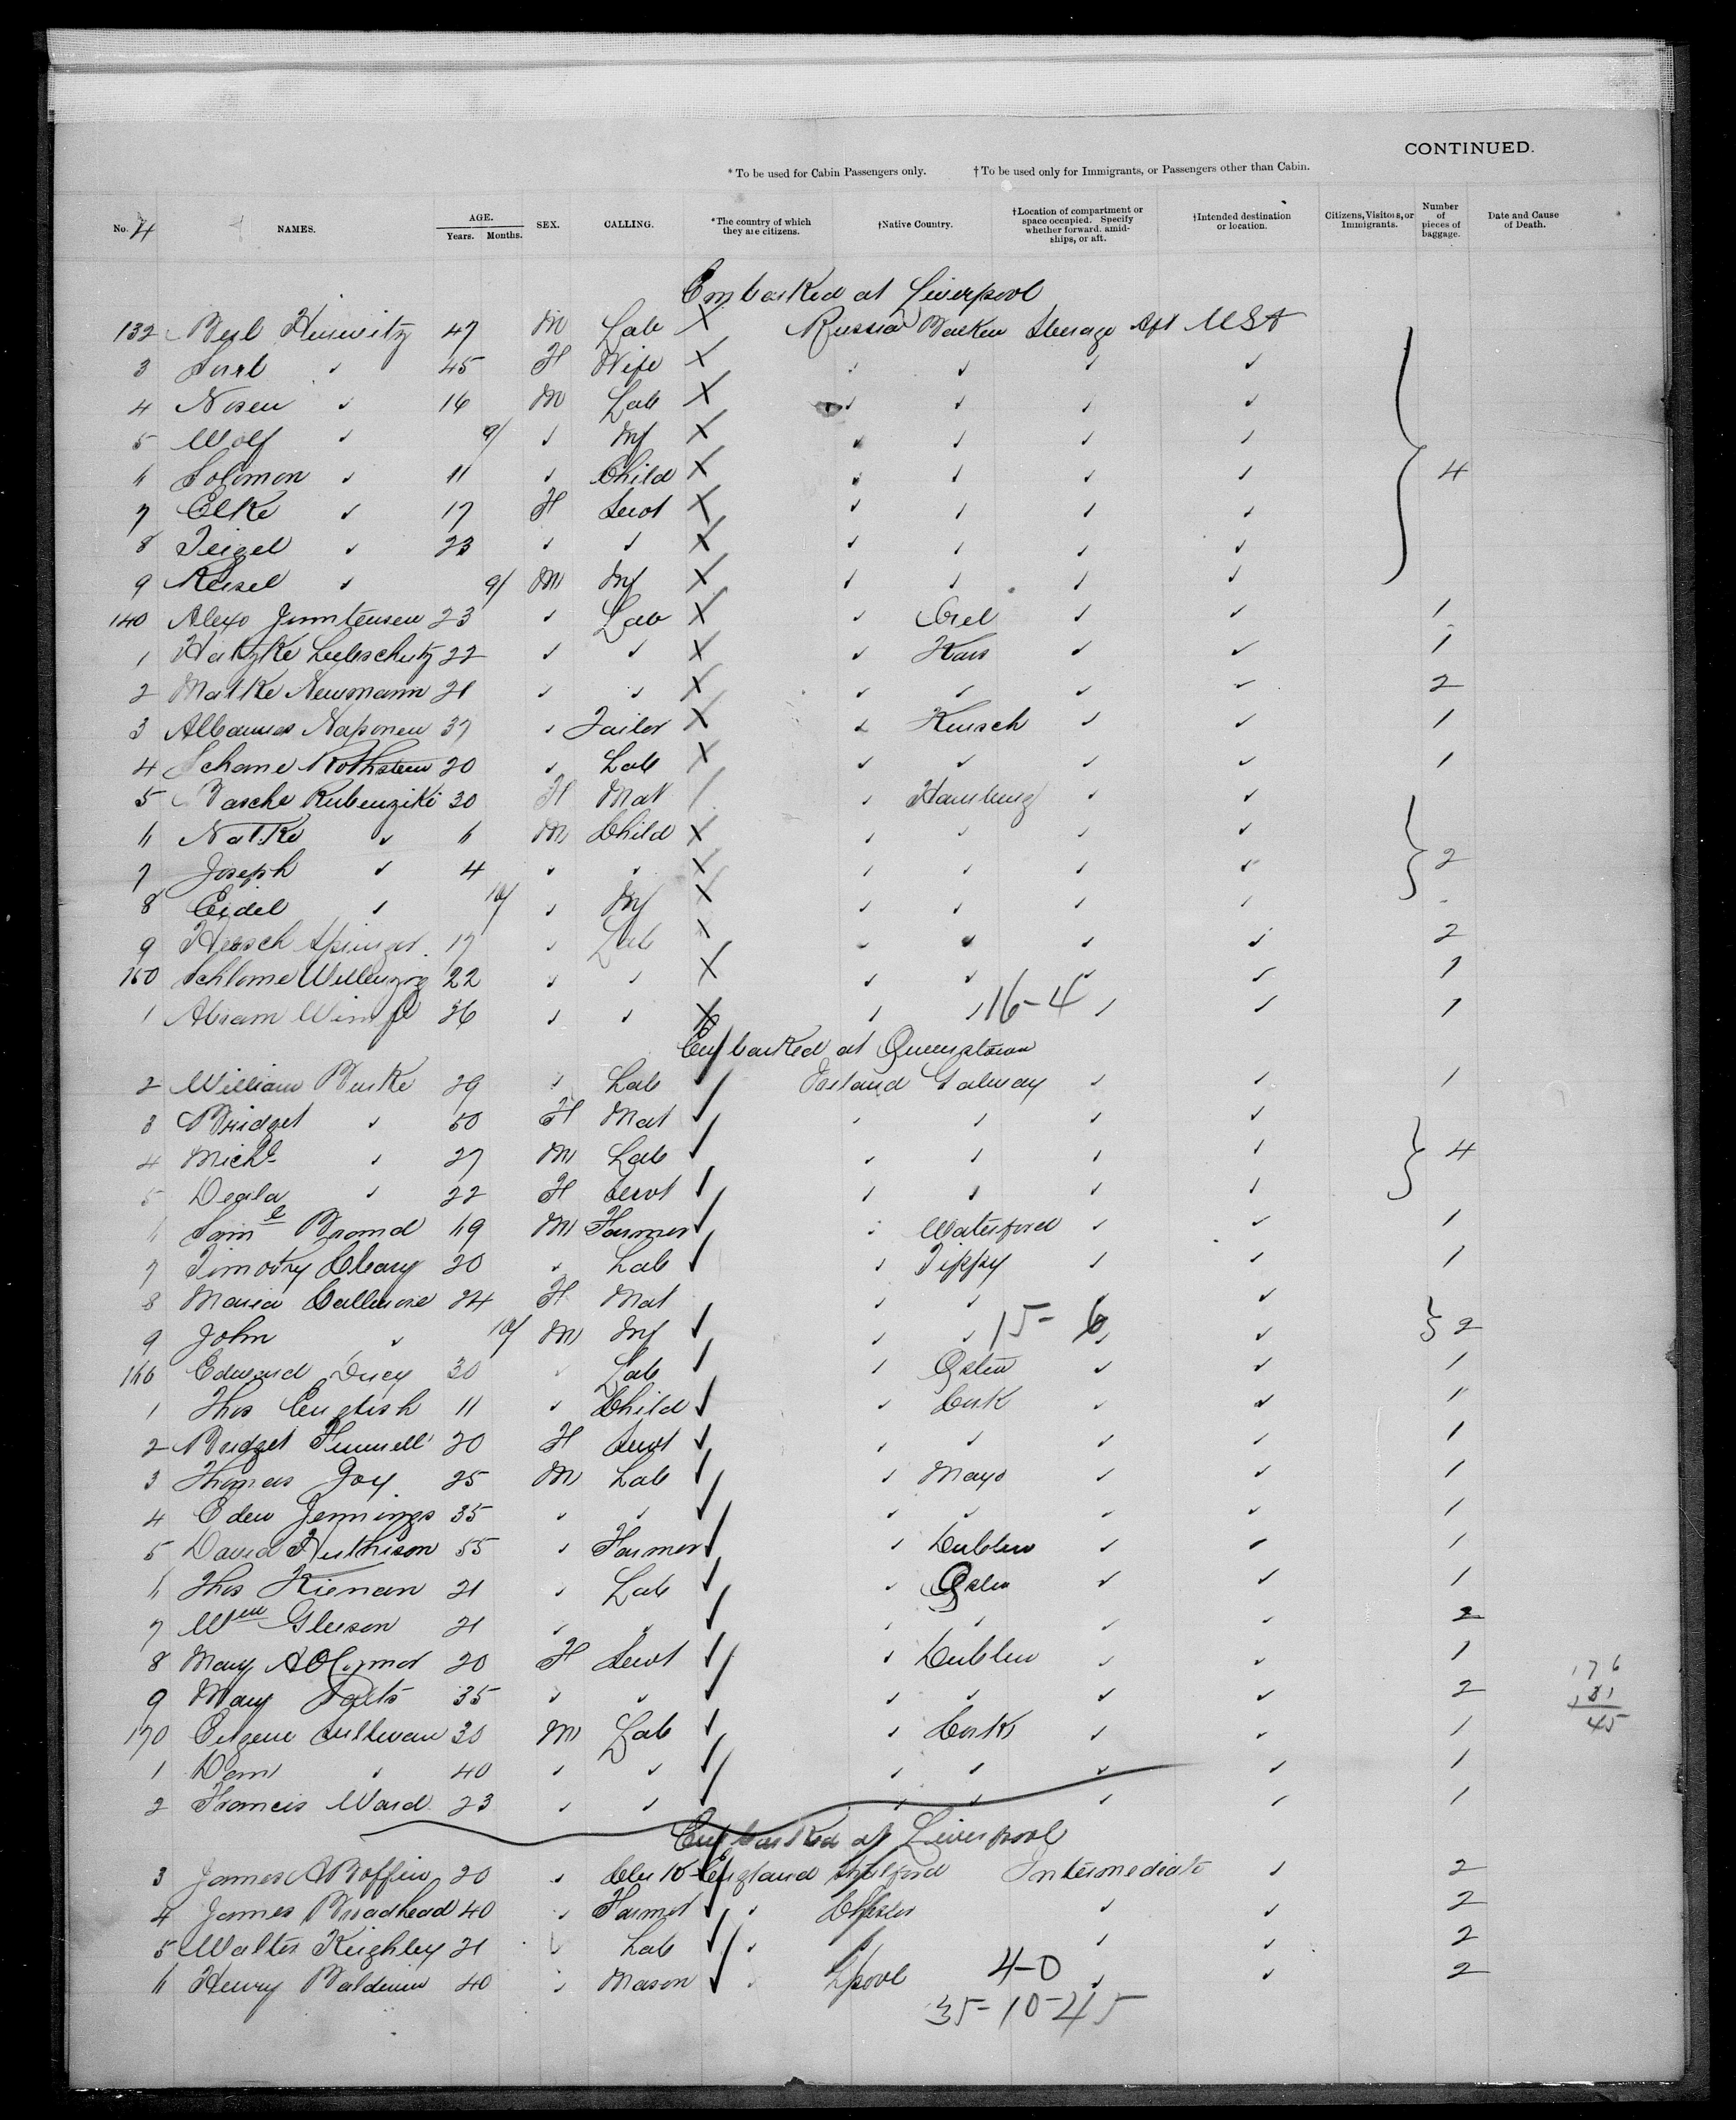 CONTINUED.
* To be used for Cabin Passengers only. † To be used only for Immigrants, or Passengers other than Cabin.
No. 4 NAMES. AGE. Years. Months. SEX. CALLING. *The country of which they are citizens. †Native Country. †Location of compartment or space occupied. Specify whether forward, amid-ships, or aft. †Intended destination or location. Citizens, Visitors, or Immigrants. Number of pieces of baggage. Date and Cause of Death.
Embarked at Liverpool
132 Berl Hurwitz 47 M Lab X Russia Steerage Aft USA
3 ✓ 45 F Wife X ✓ ✓ ✓ ✓
4 Nosen ✓ 16 M Lab X ✓ ✓ ✓ ✓
5 Wolf ✓ 9/ ✓ Inf X ✓ ✓ ✓ ✓
6 Solomon ✓ 11 ✓ Child X ✓ ✓ ✓ ✓ 4
7 Elke ✓ 17 F Servt X ✓ ✓ ✓ ✓
8 Feigel ✓ 23 ✓ ✓ X ✓ ✓ ✓ ✓
9 ✓ 9/ M Inf X ✓ ✓ ✓ ✓
140 23 ✓ Lab X ✓ Orel ✓ ✓ 1
1 Lubschutz 22 ✓ ✓ X ✓ ✓ ✓ 1
2 Matke Newmann 21 ✓ ✓ X ✓ ✓ ✓ ✓ 2
3 Naponen 37 ✓ Tailor X ✓ ✓ ✓ 1
4 Schane Rothstein 20 ✓ Lab X ✓ ✓ ✓ ✓ 1
5 Basche Rubenziki 30 F Mat / ✓ Hamburg ✓ ✓
6 Natke ✓ 6 M Child X ✓ ✓ ✓ ✓
7 Joseph ✓ 4 ✓ ✓ X ✓ ✓ ✓ ✓ 2
8 Eidel ✓ 10/ ✓ Inf X ✓ ✓ ✓ ✓
9 Hersch 17 ✓ Lab X ✓ ✓ ✓ ✓ 2
150 Schlome 22 ✓ ✓ X ✓ ✓ ✓ ✓ 1
1 Abram 36 ✓ ✓ X ✓ ✓ 16-4 ✓ ✓ 1
Embarked at Queenstown
2 William Burke 29 ✓ Lab ✓ Ireland Galway ✓ ✓ 1
3 Bridget ✓ 50 F Mat ✓ ✓ ✓ ✓ ✓
4 Michl ✓ 27 M Lab ✓ ✓ ✓ ✓ ✓ 4
5 ✓ 22 F Servt ✓ ✓ ✓ ✓ ✓
6 69 M Farmer ✓ ✓ Waterford ✓ ✓ 1
7 Timothy Cleary 20 ✓ Lab ✓ ✓ Tippy ✓ ✓ 1
8 Maria 24 F Mat ✓ ✓ ✓ ✓
9 John ✓ 10/ M Inf ✓ ✓ ✓ 15-6 ✓ ✓ 2
160 Edward 30 ✓ Lab ✓ ✓ ✓ ✓ 1
1 Thos English 11 ✓ Child ✓ ✓ Cork ✓ ✓ 1
2 Bridget 20 F Servt ✓ ✓ ✓ ✓ ✓ 1
3 Thomas Joy 25 M Lab ✓ ✓ Mayo ✓ ✓ 1
4 Edw Jennings 35 ✓ ✓ ✓ ✓ ✓ ✓ ✓ 1
5 David 55 ✓ Farmer ✓ ✓ Dublin ✓ ✓ 1
6 Thos Kienan 21 ✓ Lab ✓ ✓ ✓ ✓ 1
7 Wm Gleeson 21 ✓ ✓ ✓ ✓ ✓ ✓ ✓ 2
8 Mary A O'Connor 20 F Servt ✓ ✓ Dublin ✓ ✓ 1
9 Mary 35 ✓ ✓ ✓ ✓ ✓ ✓ ✓ 2
176
131
45
170 Eugene Sullivan 30 M Lab ✓ ✓ Cork ✓ ✓ 1
1 Danl ✓ 40 ✓ ✓ ✓ ✓ ✓ ✓ ✓ 1
2 Francis Ward 23 ✓ ✓ ✓ ✓ ✓ ✓ ✓ 1
Embarked at Liverpool
3 James A Boffin 20 ✓ Clerk England Intermediate ✓ 2
4 James Broadhead 40 ✓ Farmer ✓ ✓ Chester ✓ ✓ 2
5 Walter Keighley 21 ✓ Lab ✓ ✓ ✓ ✓ ✓ 2
6 Henry Baldwin 40 ✓ Mason ✓ ✓ Lpool 4-0 ✓ ✓ 2
35-10-45